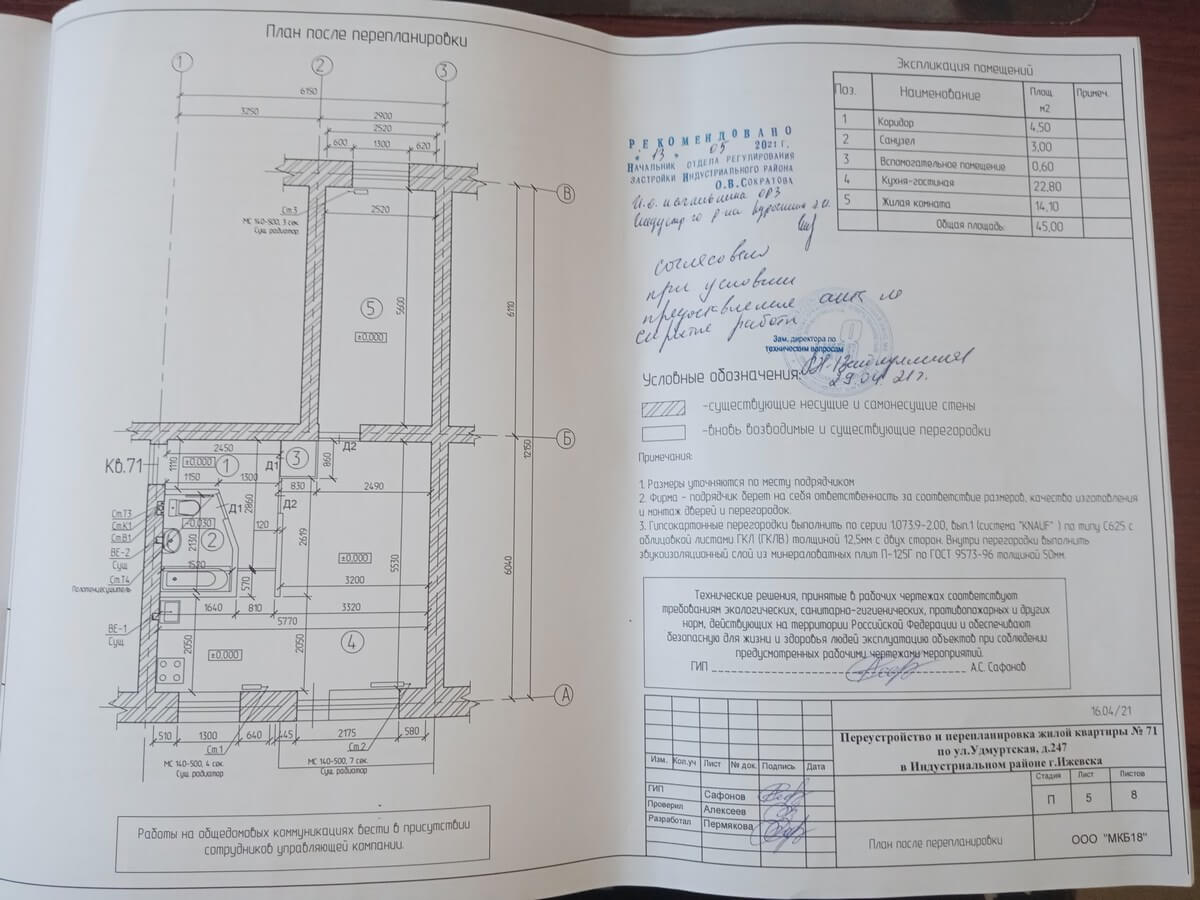 План после перепланировки
1
2
3
6150
3250
2900
2520
600
1300
620
В
Ст.3
МС 140-500, 3 сек.
Сущ. радиатор
2520
5
±0.000
5600
6110
12150
Б
Кв.71
2450
1110
±0.000
1
Д1
3
860
Д2
1150
1300
830
2490
2860
Д1
Д2
Ст.Т3
Ст.К1
Ст.В1
ВЕ-2
Сущ
Ст.Т4
Полотенцесушитель
-0.030
2
2130
120
2619
1520
570
±0.000
5530
6040
3200
1640
810
3320
5770
ВЕ-1
Сущ
2050
±0.000
2050
4
А
510
1300
640
445
2175
580
Ст.1
Ст.2
МС 140-500, 4 сек.
Сущ. радиатор
МС 140-500, 7 сек.
Сущ. радиатор
Работы на общедомовых коммуникациях вести в присутствии
сотрудников управляющей компании.
Экспликация помещений
Поз. Наименование Площ. м2 Примеч.
1 Коридор 4,50
2 Санузел 3,00
3 Вспомогательное помещение 0,60
4 Кухня-гостиная 22,80
5 Жилая комната 14,10
Общая площадь: 45,00
РЕКОМЕНДОВАНО
"13" 05 2021 г.
Начальник отдела регулирования
застройки Индустриального района
О.В.Сократова
И.о. начальника ОРЗ
согласовано
при условии
предоставления акта
скрытые работы
Зам. директора по
техническим вопросам
29.04.21г.
Условные обозначения:
-существующие несущие и самонесущие стены
-вновь возводимые и существующие перегородки
Примечания:
1. Размеры уточняются по месту подрядчиком
2. Фирма - подрядчик берет на себя ответственность за соответствие размеров, качества изготовления
и монтаж дверей и перегородок.
3. Гипсокартонные перегородки выполнить по серии 1.073.9-2.00, вып.1 (система "KNAUF" ) по типу С625 с
облицовкой листами ГКЛ (ГКЛВ) толщиной 12,5мм с двух сторон. Внутри перегородки выполнить
звукоизоляционный слой из минераловатных плит П-125Г по ГОСТ 9573-96 толщиной 50мм.
Технические решения, принятые в рабочих чертежах соответствуют
требованиям экологических, санитарно-гигиенических, противопожарных и других
норм, действующих на территории Российской Федерации и обеспечивают
безопасную для жизни и здоровья людей эксплуатацию объектов при соблюдении
предусмотренных рабочими чертежами мероприятий.
ГИП А.С. Сафонов
16.04/21
Переустройство и перепланировка жилой квартиры № 71
по ул.Удмуртская, д.247
в Индустриальном районе г.Ижевска
Изм. Кол.уч Лист № док. Подпись Дата
ГИП Сафонов
Проверил Алексеев
Разработал Пермякова
Стадия Лист Листов
П 5 8
План после перепланировки
ООО "МКБ18"